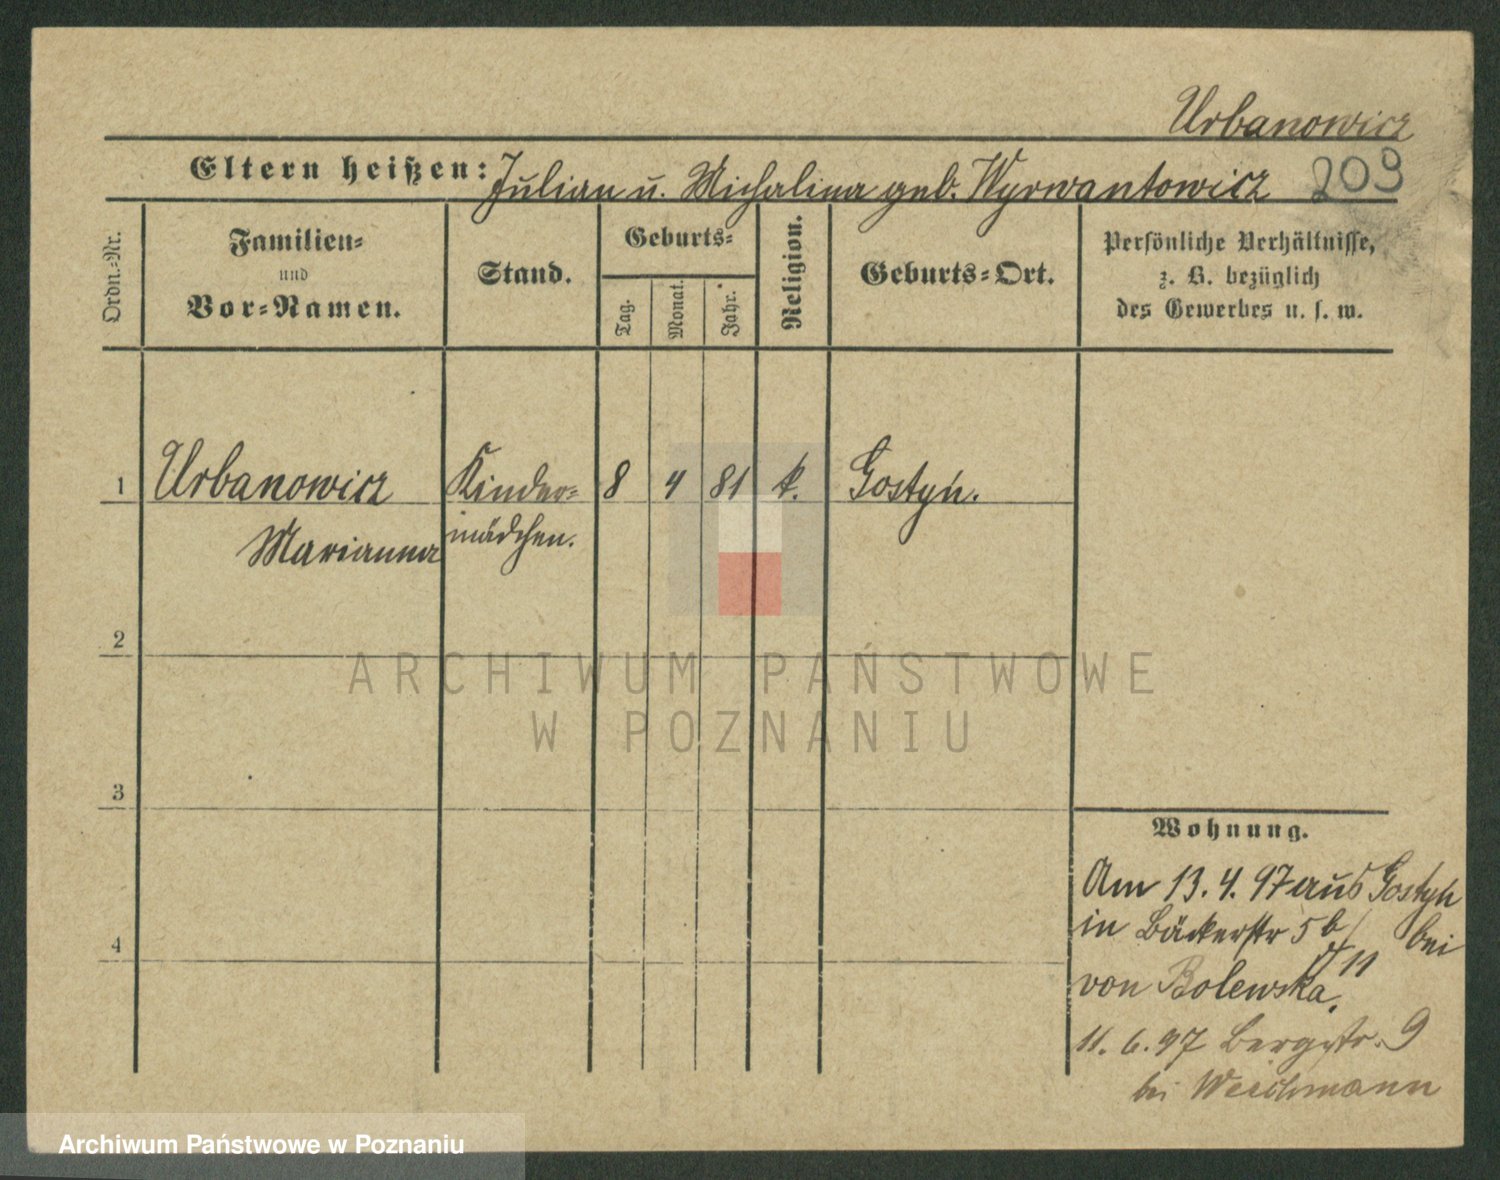 Urbanowicz
Eltern heißen: Julian u. Michalina geb. Wyrwantowicz 209
Ordn.-Nr.
Familien-
und
Vor-Namen.
Stand.
Geburts-
Tag.
Monat.
Jahr.
Religion.
Geburts-Ort.
Persönliche Verhältnisse,
z. B. bezüglich
des Gewerbes u. s. w.
1 Urbanowicz Kinder- 8 4 81 k. Gostyn.
Marianna mädchen.
2
3
4
Wohnung.
Am 13. 4. 97 aus Gostyn
in Bäckerstr 5 b/ bei
II
von Bolewska.
11. 6. 97 Bergstr. 9
bei Weichmann
ARCHIWUM PAŃSTWOWE
W POZNANIU
Archiwum Państwowe w Poznaniu